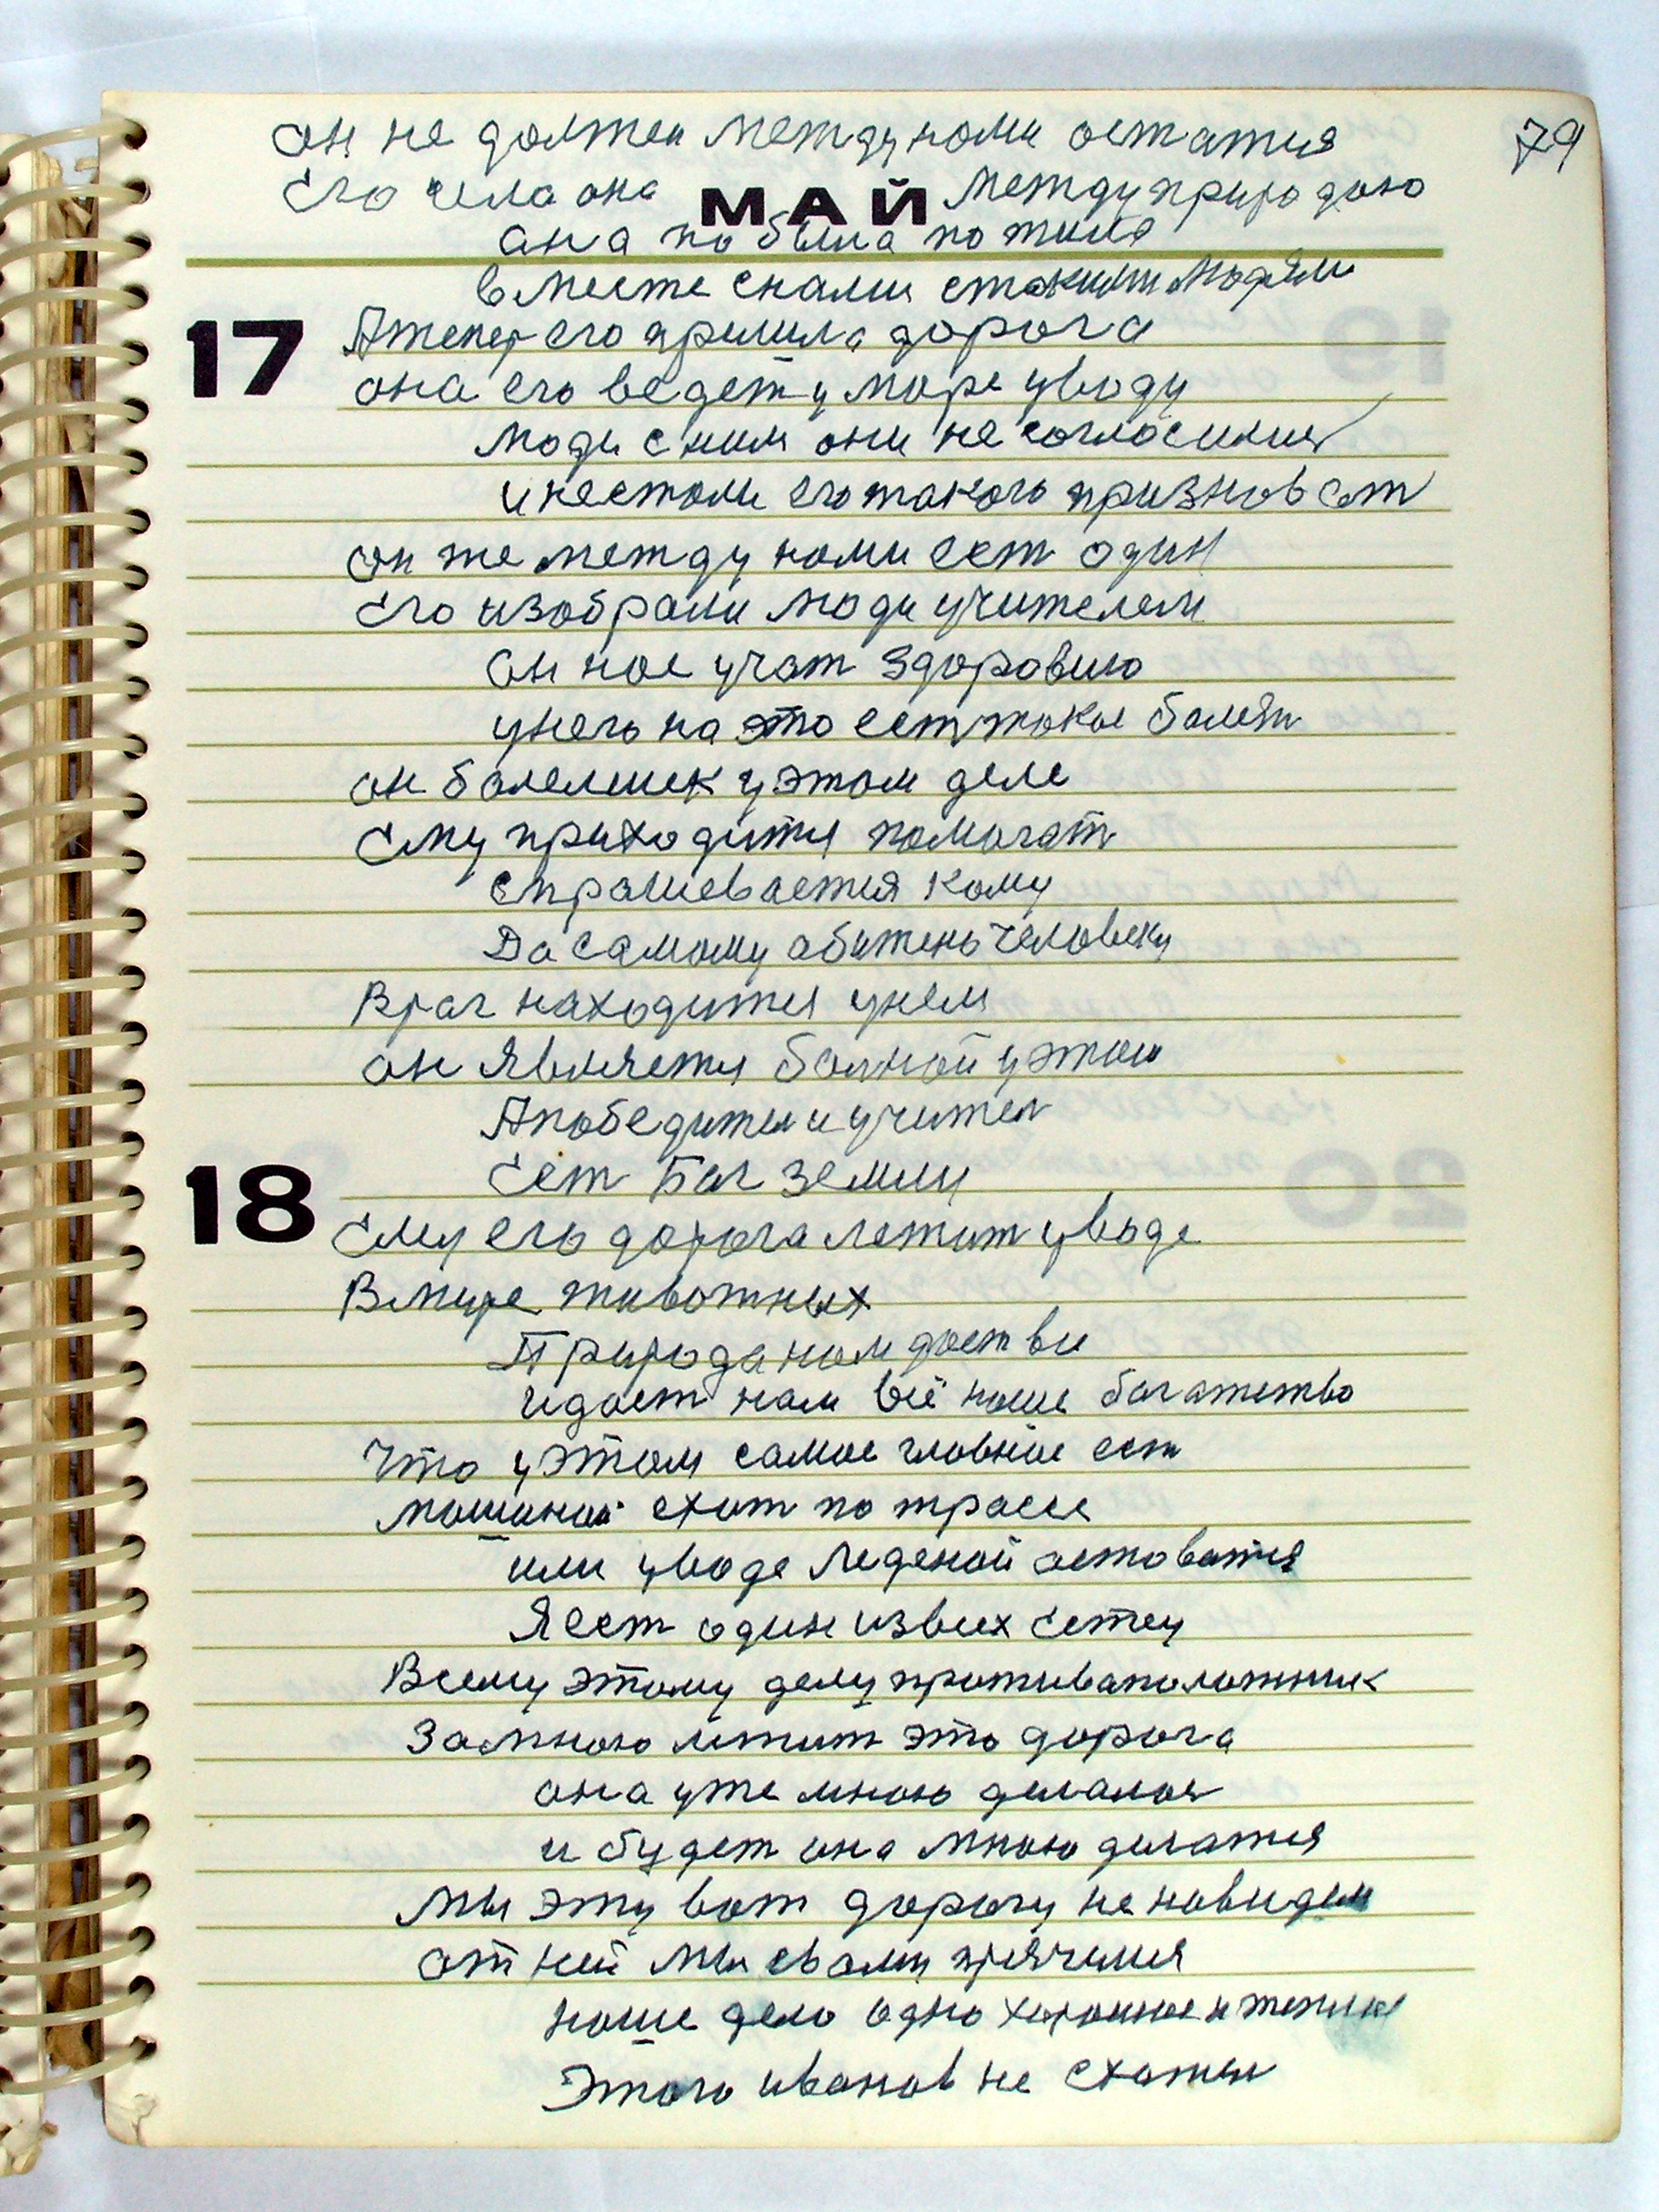 79
он не должен между нами остатия
Его села она между природаю
МАЙ
она побыла пожила
вместе снами стакими людями
17
Атепер его пришила дорога
она его ведет у море уводу
люди с ним они не согласилия
и нестали его такого признават
он же между нами ест один
Его изобрали люди учителем
он нас учат здоровию
унего на это ест такое болет
он болелшек у этом деле
Ему приходится помагат
спрашеваетия кому
Да самому обижень человеку
Враг находится унем
он является болной у этом
А победител и учител
ест Бог земли
18
Ему его дорога лежит уводе
В мире животных
Природа нам дает ви
и дает нам всё наше богатство
Что у этом самое главное ест
машиной ехат по трассе
или уводе леденой астоватия
Я ест один извсех сетец
Всему этому делу противаположник
Замною лежит это дорога
она уже мною делалоя
и будет она мною делатия
Мы эту вот дорогу не новидем
от ней мы свами прячимия
наше дело одно хорошое и теплое
Этого иванов не схател